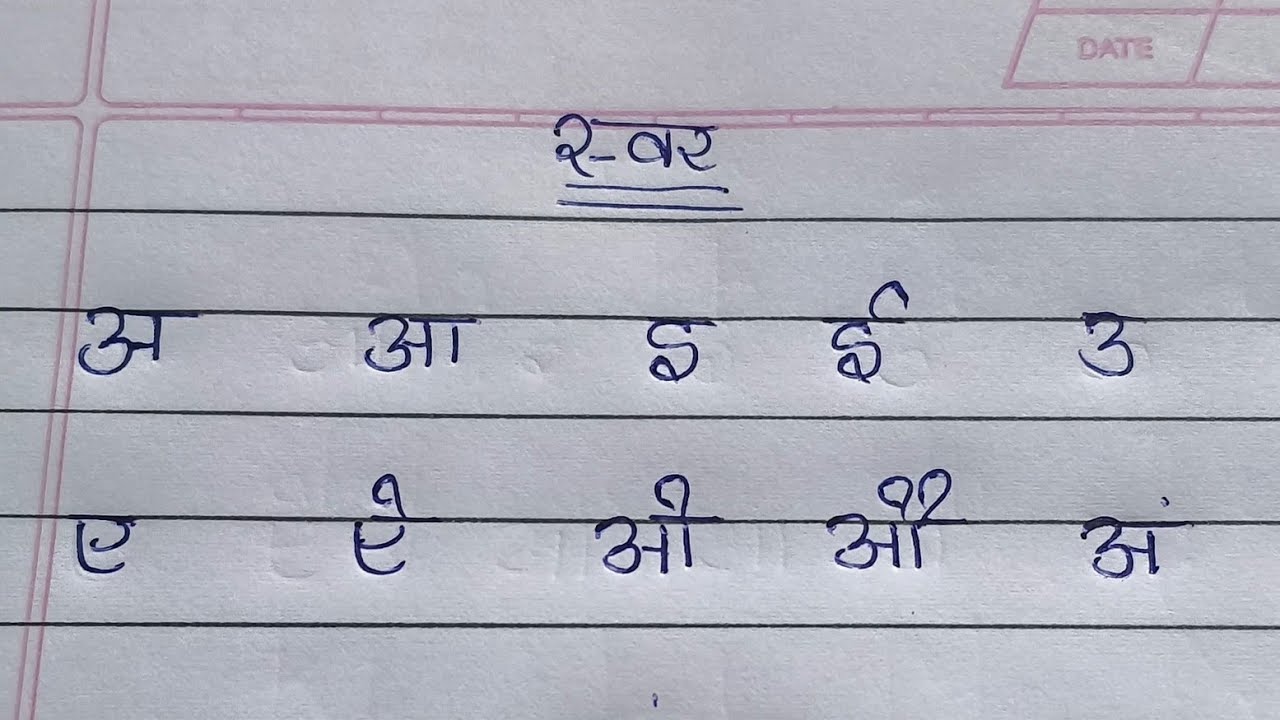 DATE
स्वर
अ आ इ ई उ
ए ऐ ओ औ अं